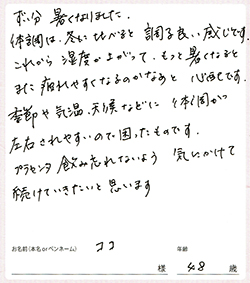 ずい分 暑くなりました。
体調は、冬に比べると 調子良い感じです。
これから 湿度が上がって、もっと暑くなると
また疲れやすくなるのかなぁと 心配です。
季節や気温、天候などに 体調が
左右されやすいので困ったものです。
プラセンタ 飲み忘れないよう 気にかけて
続けていきたいと思います
お名前(本名orペンネーム) 年齢
ココ 様 48 歳